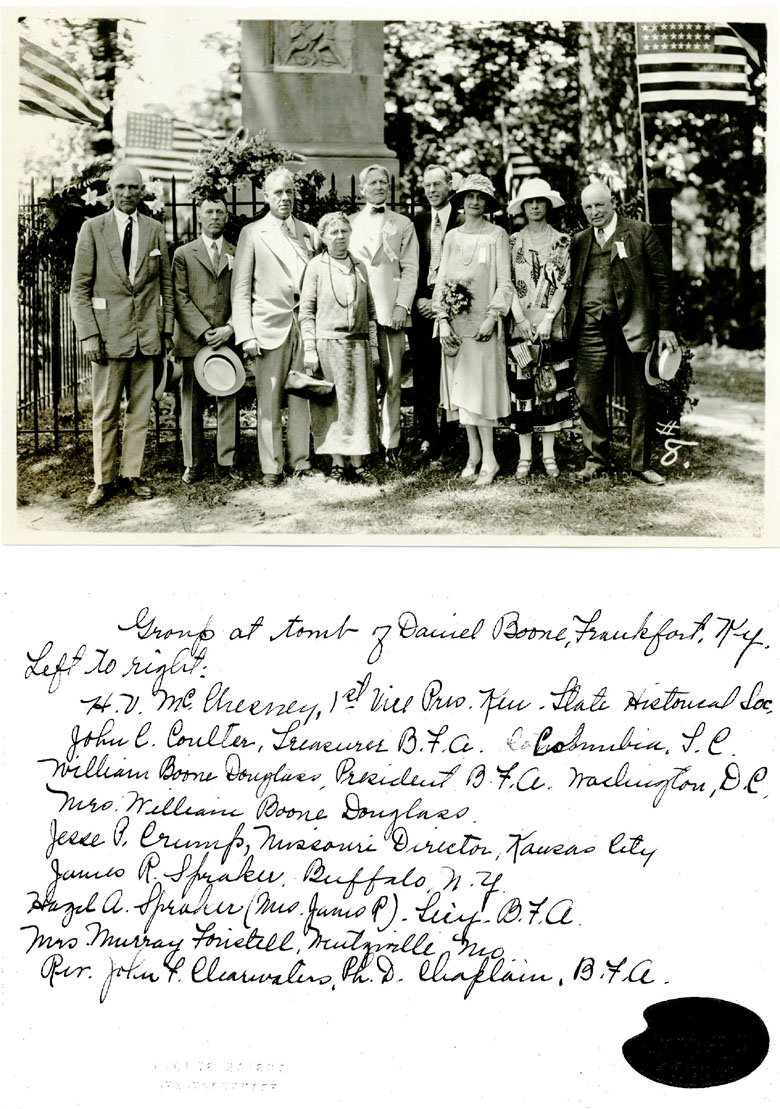 H6.
Group at tomb of Daniel Boone, Frankfort, Ky.
Left to right:
H. V. McChesney, 1st Vice Pres. Ken. State Historical Soc.
John C. Coulter, Treasurer B.F.A. Columbia, S.C.
William Boone Douglass, President B.F.A. Washington, D.C.
Mrs. William Boone Douglass.
Jesse P. Crump, Missouri Director, Kansas City
James R. Spraker, Buffalo, N.Y.
Hazel A. Spraker (Mrs. James R). Secy. B.F.A.
Mrs Murray Foristell, Wentzville, Mo.
Rev. John F. Clearwaters, Ph.D. Chaplain, B.F.A.